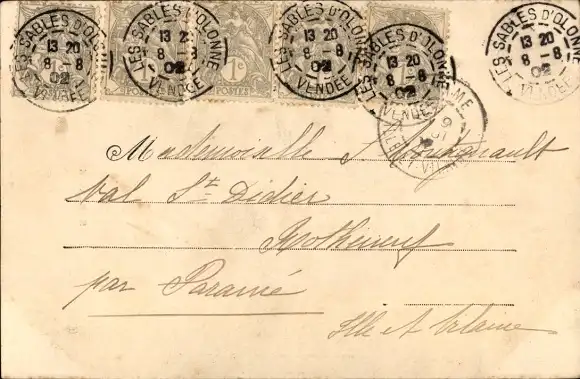 LES SABLES D'OLONNE
13 20
8 - 8
02
VENDÉE
LES SABLES D'OLONNE
13 2
8 - 8
02
VENDÉE
LES SABLES D'OLONNE
13 20
8 - 8
02
VENDÉE
LES SABLES D'OLONNE
13 20
8 - 8
02
VENDÉE
LES SABLES D'OLONNE
13 20
8 - 8
02
VENDÉE
1c
POSTES
Mademoiselle
Val St Didier
Rothéneuf
par Paramé
Ille et Vilaine